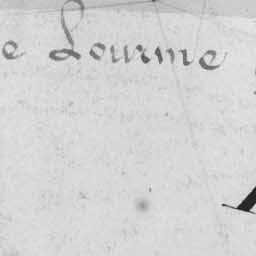 e Lourme